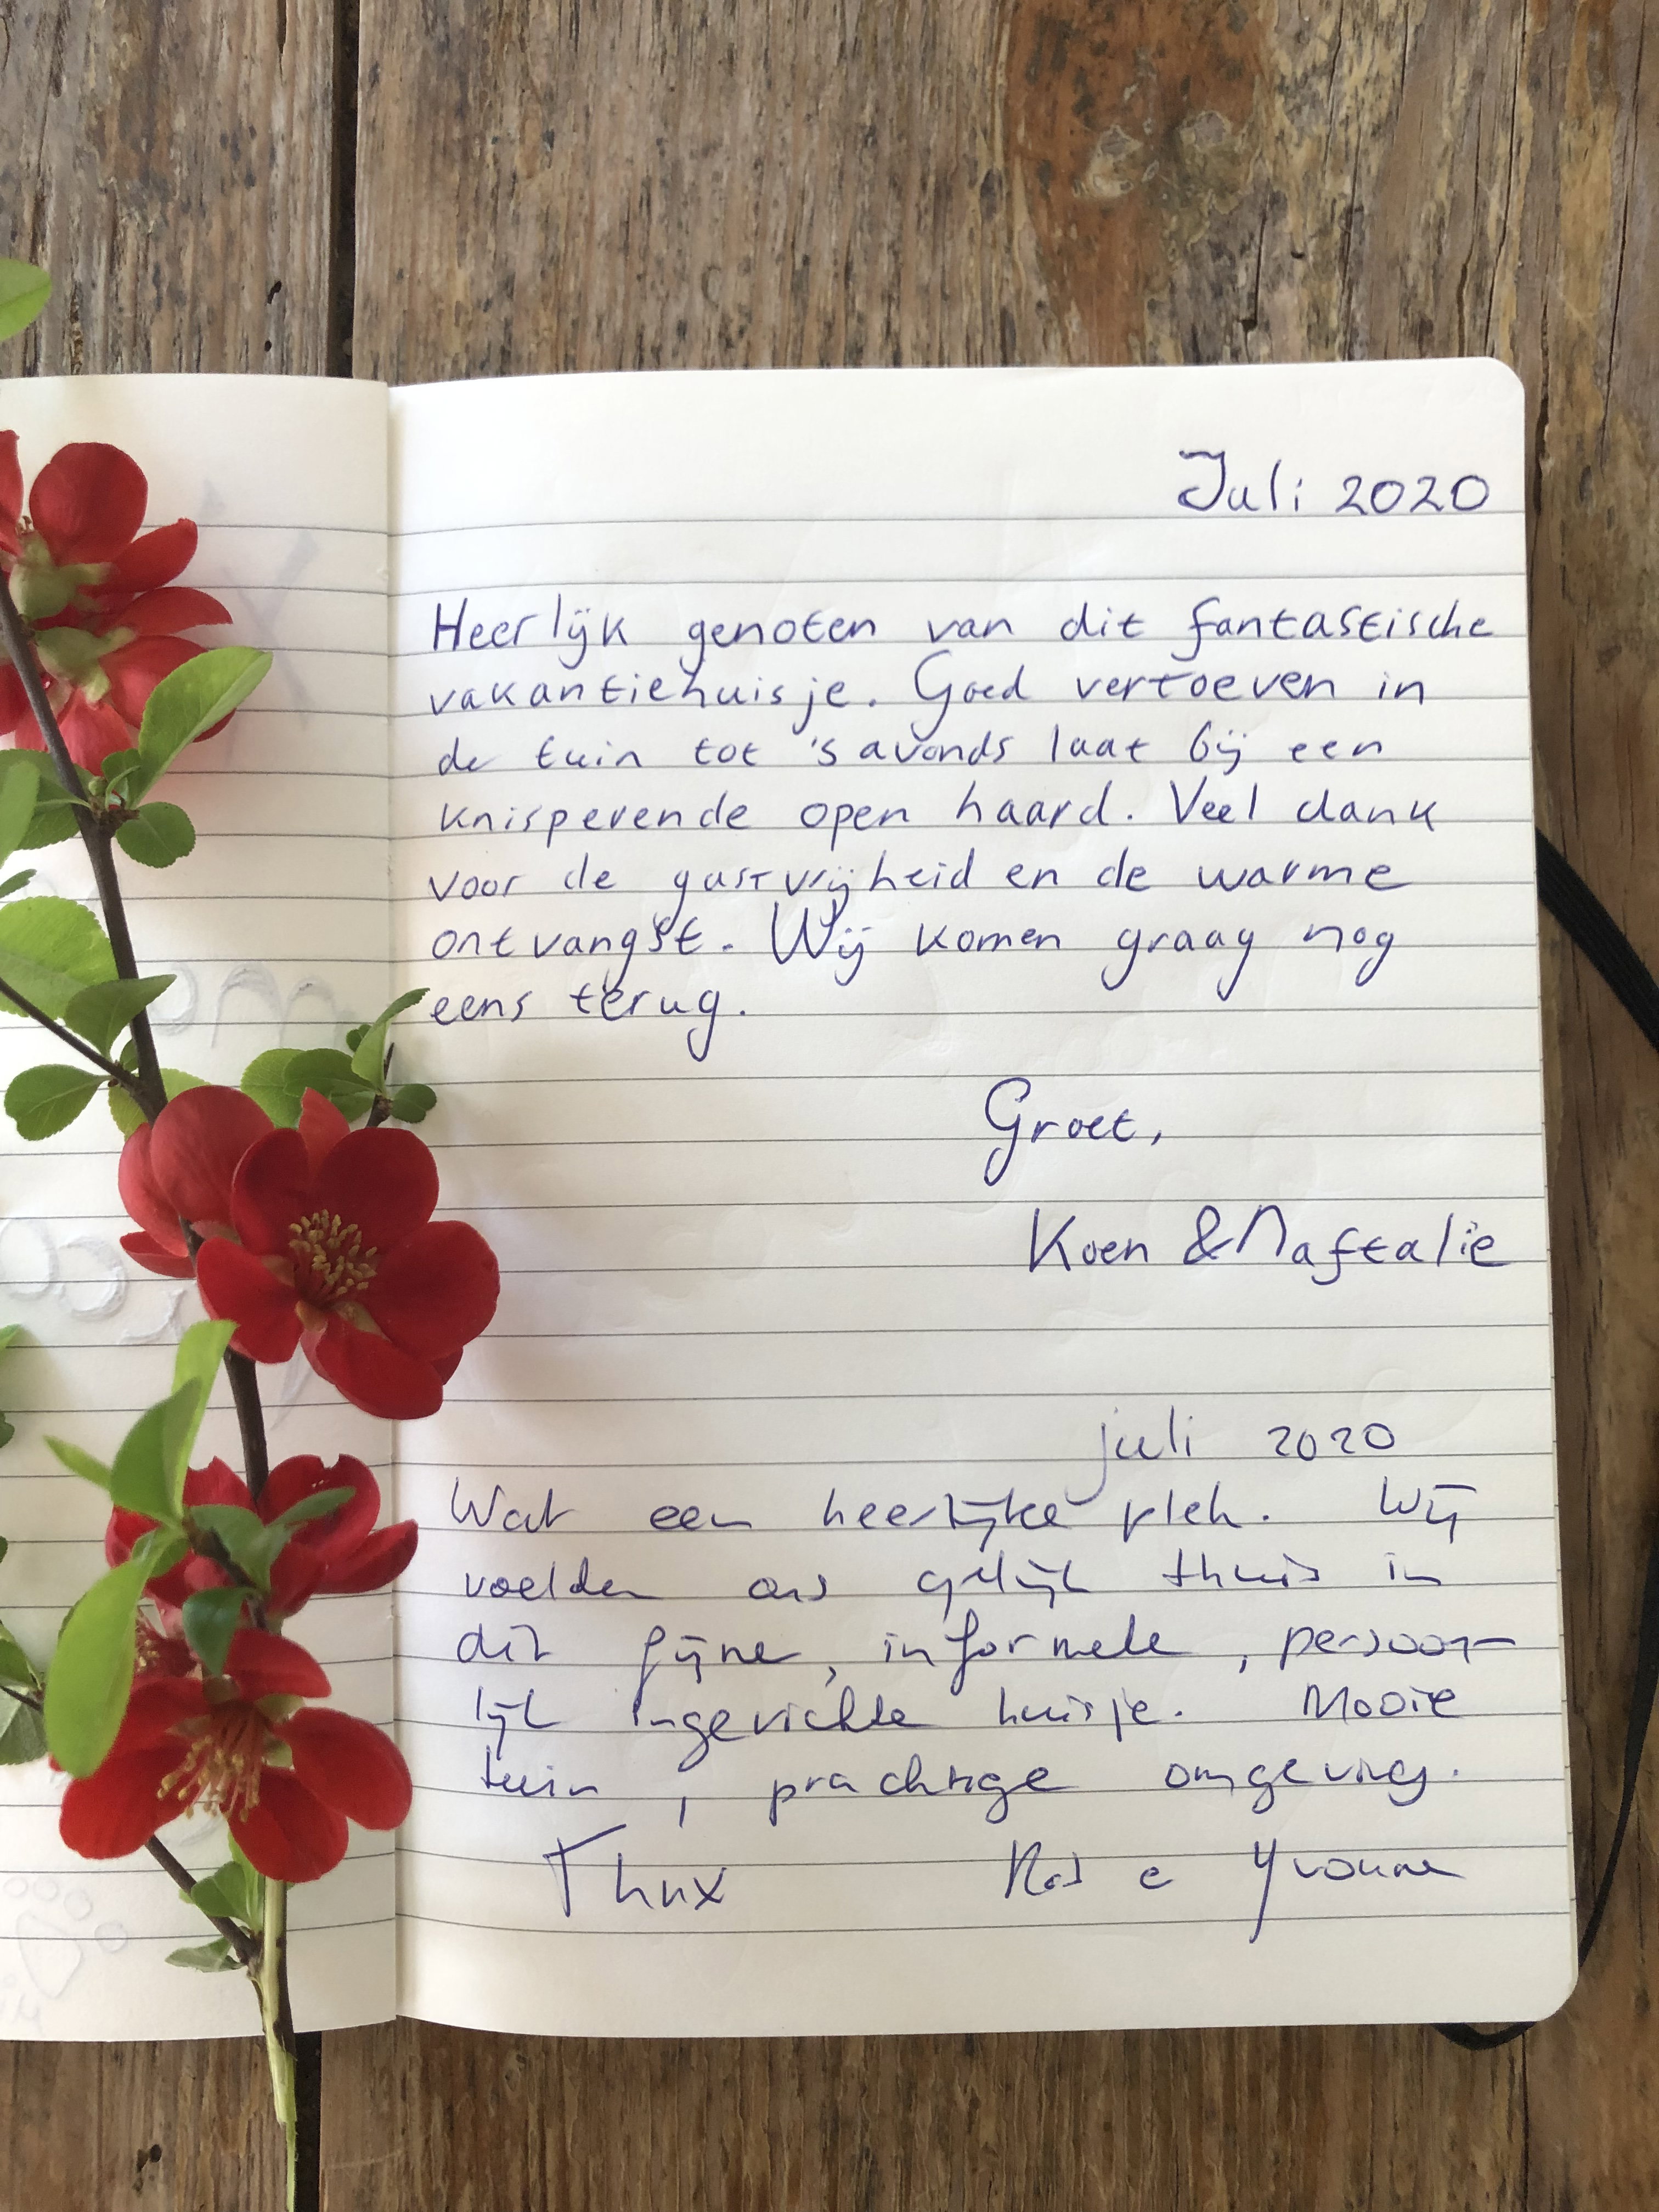 Juli 2020
Heerlijk genoten van dit fantastische
vakantiehuisje. Goed vertoeven in
de tuin tot 's avonds laat bij een
knisperende open haard. Veel dank
voor de gastvrijheid en de warme
ontvangst. Wij komen graag nog
eens terug.
Groet,
Koen & Naftalie
juli 2020
Wat een heerlijke plek. Wij
voelden ons gelijk thuis in
dit fijne, informele, persoon-
lijk ingerichte huisje. Mooie
tuin, prachtige omgeving.
Thnx
Yvonne